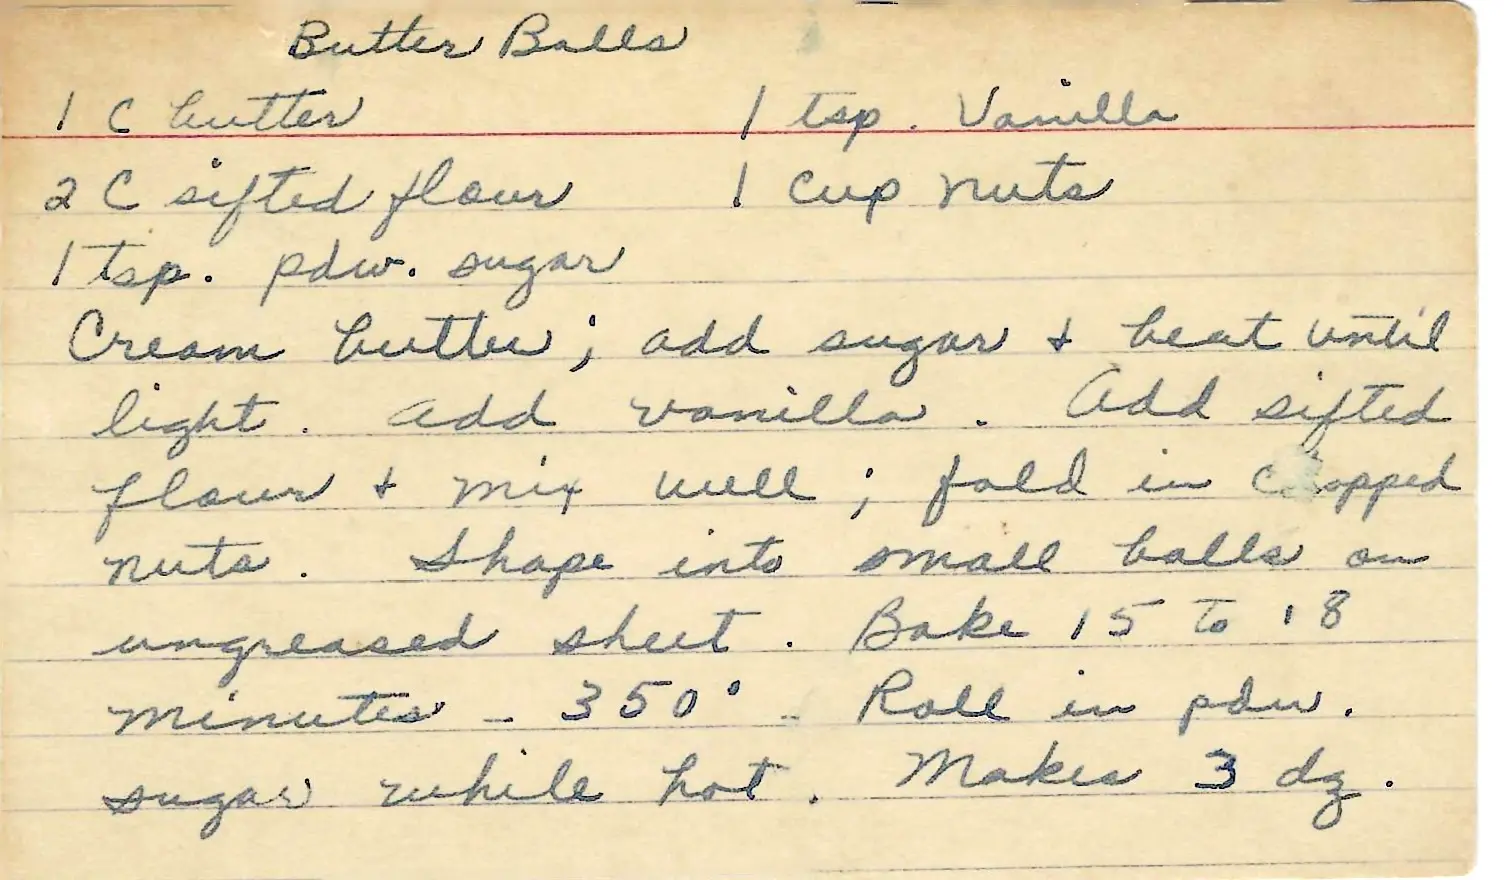 Butter Balls
1 C butter 1 tsp. Vanilla
2 C sifted flour 1 cup nuts
1 tsp. pdw. sugar
Cream butter; add sugar & beat until
light. Add vanilla. Add sifted
flour & mix well; fold in chopped
nuts. Shape into small balls on
ungreased sheet. Bake 15 to 18
minutes - 350° - Roll in pdw.
sugar while hot. Makes 3 dz.